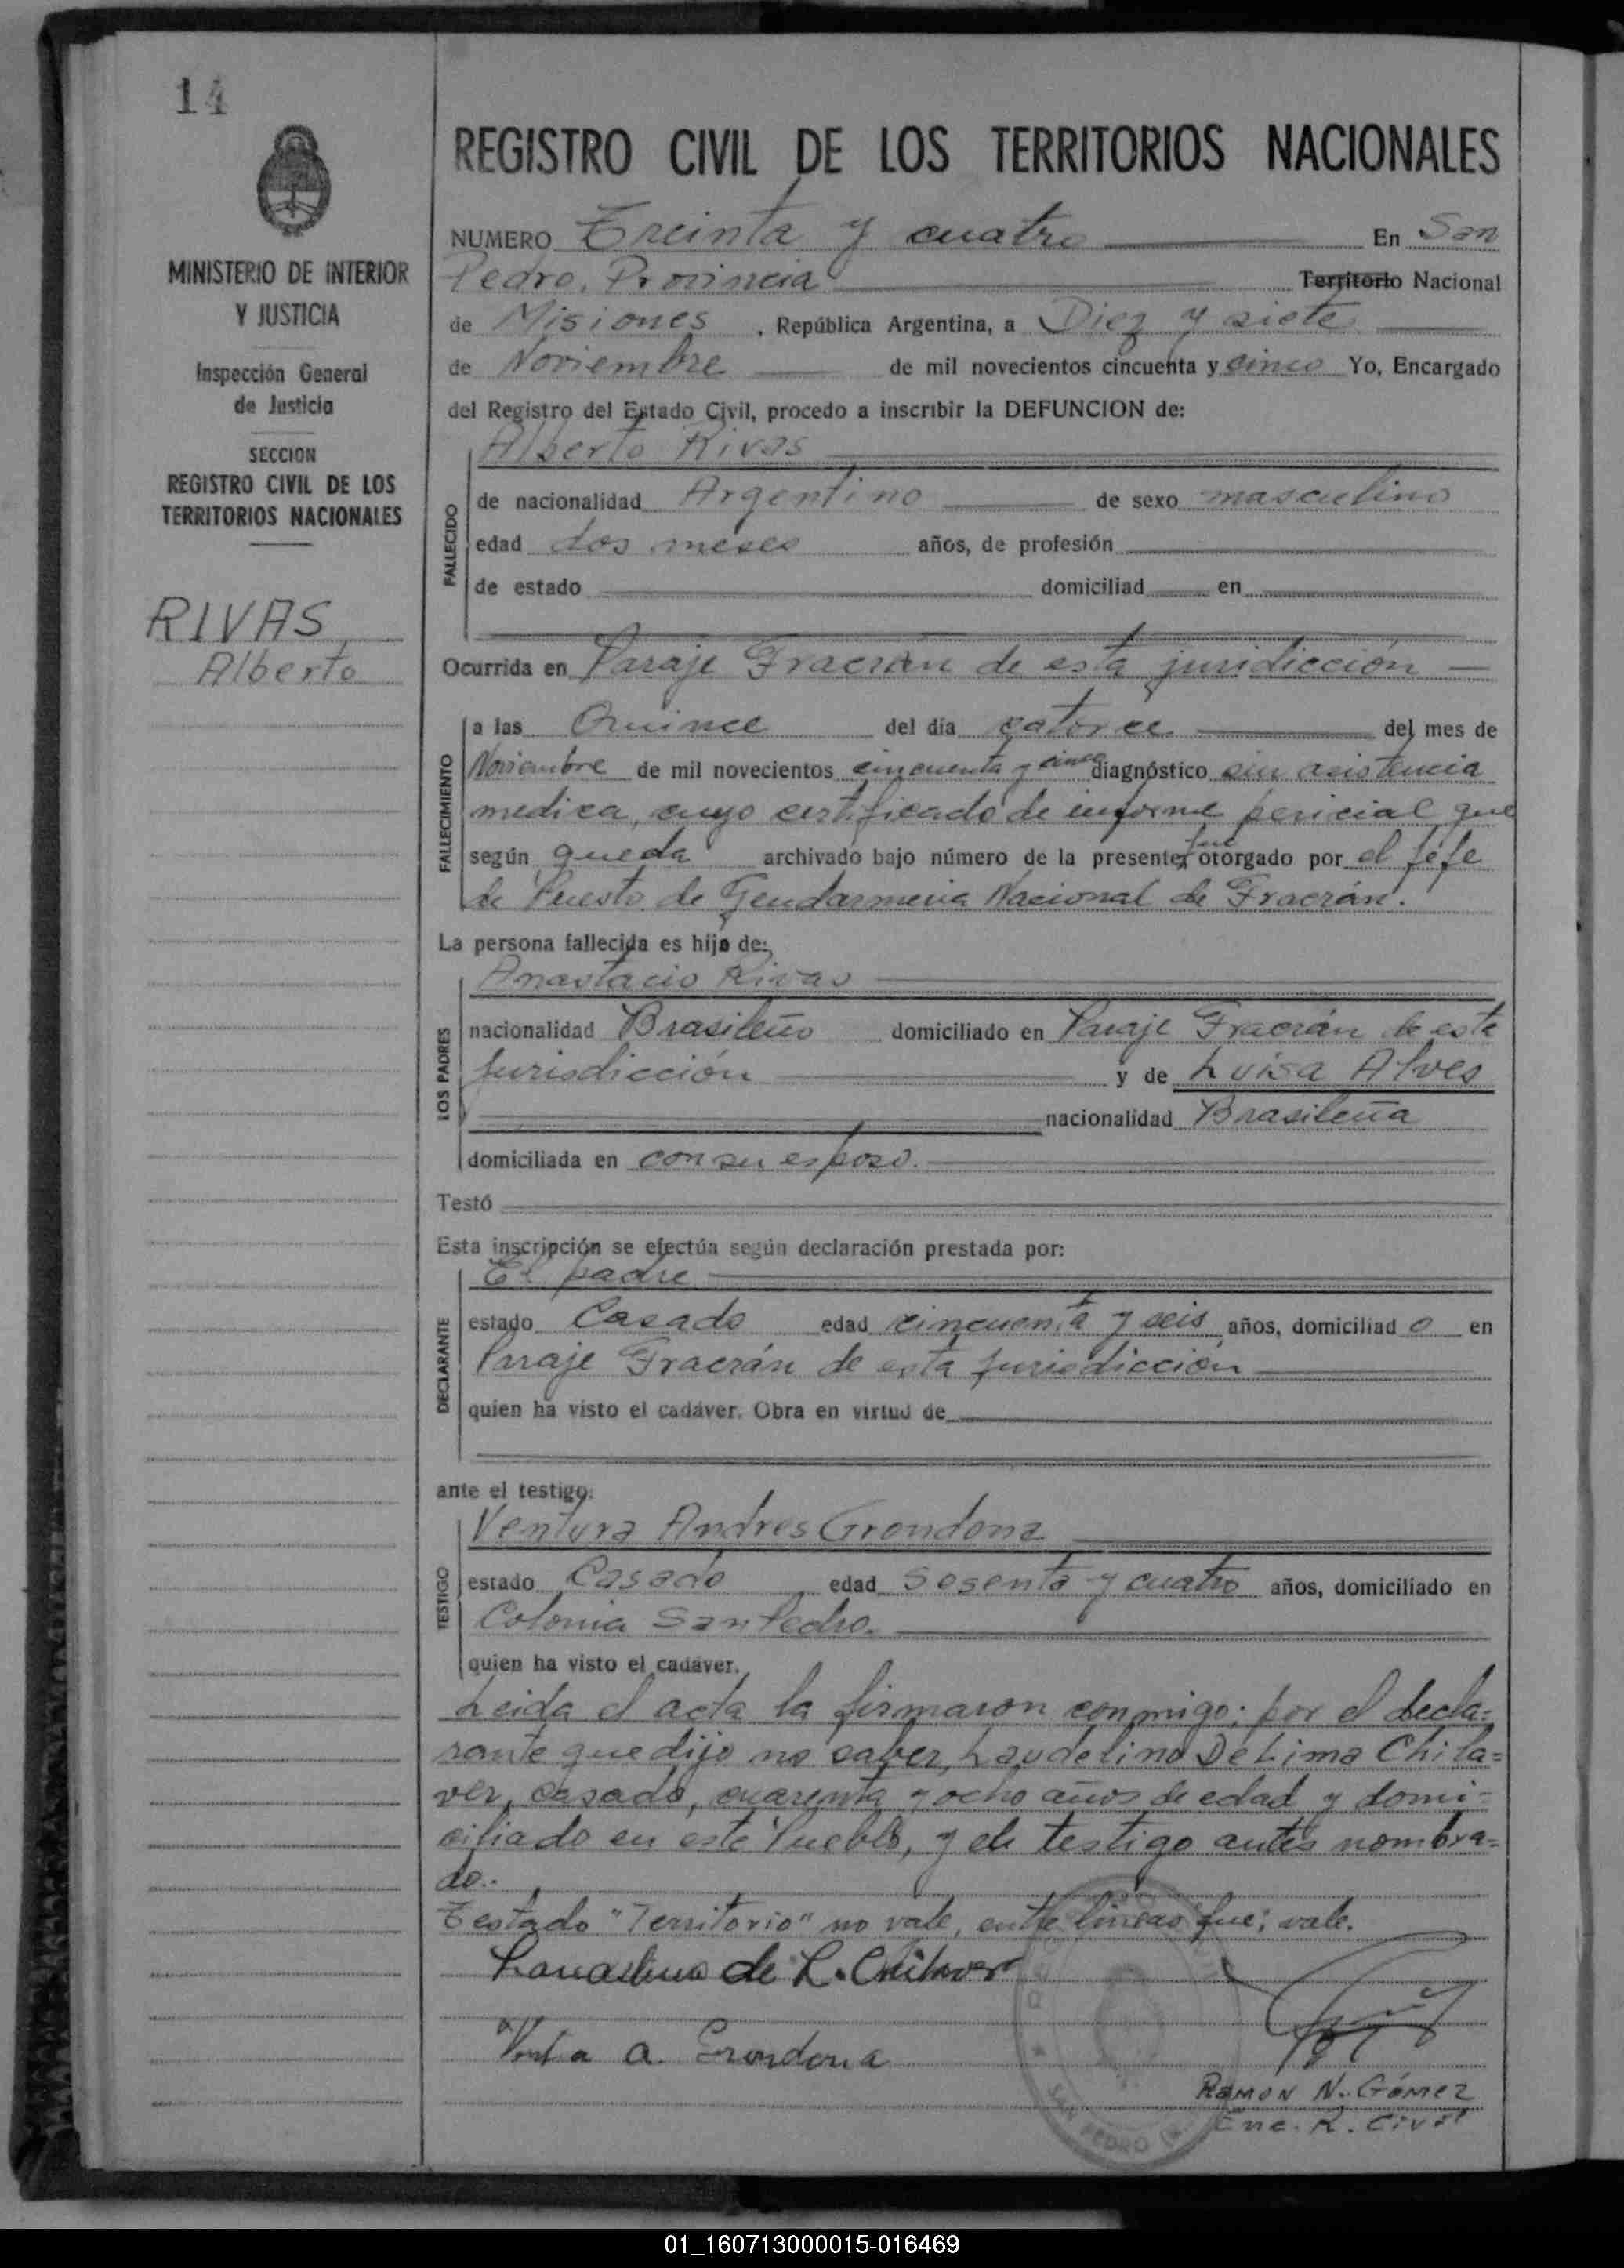 14
MINISTERIO DE INTERIOR
Y JUSTICIA
Inspección General
de Justicia
SECCION
REGISTRO CIVIL DE LOS
TERRITORIOS NACIONALES
RIVAS
Alberto
REGISTRO CIVIL DE LOS TERRITORIOS NACIONALES
NUMERO Treinta y cuatro En San
Pedro, Provincia Territorio Nacional
de Misiones, República Argentina, a Diez y siete
de Noviembre de mil novecientos cincuenta y cinco Yo, Encargado
del Registro del Estado Civil, procedo a inscribir la DEFUNCION de:
FALLECIDO
Alberto Rivas
de nacionalidad Argentino de sexo masculino
edad dos meses años, de profesión
de estado domiciliad en
Ocurrida en Paraje Fracrán de esta juridicción
FALLECIMIENTO
a las Quince del día catorce del mes de
Noviembre de mil novecientos cincuenta y cinco diagnóstico sin asistencia
medica, cuyo certificado de informe pericial que
según queda archivado bajo número de la presente, fue otorgado por el Jefe
de Puesto de Gendarmeria Nacional de Fracrán.
La persona fallecida es hijo de:
LOS PADRES
Anastacio Rivas
nacionalidad Brasileño domiciliado en Paraje Fracrán de esta
Jurisdicción y de Luisa Alves
nacionalidad Brasileña
domiciliada en con su esposo.
Testó
Esta inscripción se efectúa según declaración prestada por:
DECLARANTE
El padre
estado Casado edad cincuenta y seis años, domiciliad o en
Paraje Fracrán de esta jurisdicción
quien ha visto el cadáver. Obra en virtud de
ante el testigo:
TESTIGO
Ventura Andres Grondona
estado Casado edad Sesenta y cuatro años, domiciliado en
Colonia San Pedro.
quien ha visto el cadáver.
Leida el acta la firmaron conmigo; por el decla=
rante que dijo no saber, Laudelino De Lima Chila=
ver, casado, cuarenta y ocho años de edad y domi=
ciliado en este Pueblo, y el testigo antes nombra=
do.
Testado "Territorio" no vale, entre lineas "fue; vale.
Laudelino de L. Chilaver
a. Grondona
SAN PEDRO
RAMON N. GÓMEZ
Enc. R. Civil
01_160713000015-016469